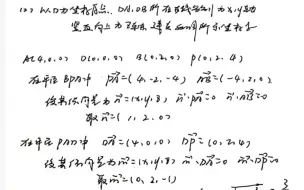 (2) 以D为坐标原点, DA, DB所在直线分别为x,y轴
竖直向上为z轴, 建立如图所示坐标系
A(4,0,0) D(0,0,0) B(0,2,0) P(0,2,4)
在平面BPA中 PA=(4,-2,-4) AB=(-4,2,0)
设其法向量为n=(x,y,z) n·PA=0 n·AB=0
取n=(1,2,0)
在平面PAD中 DA=(4,0,0) DP=(0,2,4)
设其法向量为m=(x,y,z) m·DA=0 m·DP=0
取m=(0,2,-1)